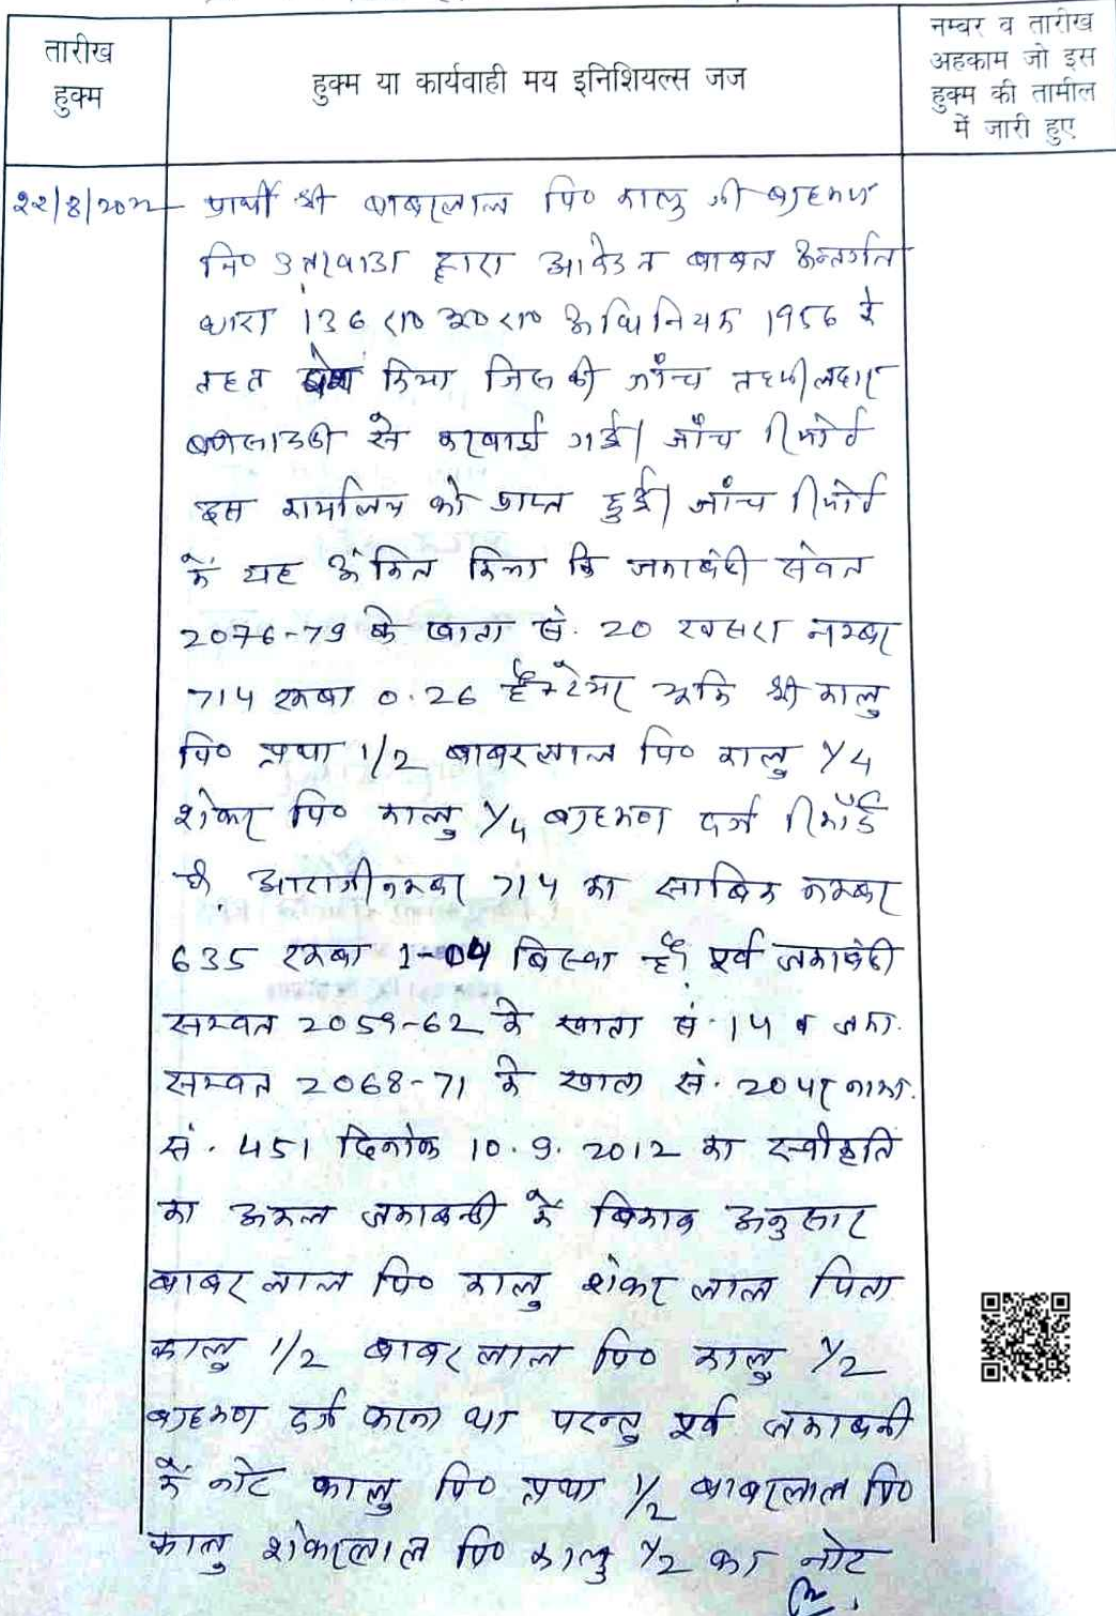 तारीख
हुक्म
हुक्म या कार्यवाही मय इनिशियल्स जज
नम्बर व तारीख
अहकाम जो इस
हुक्म की तामील
में जारी हुए
22/8/2022
प्रार्थी श्री बाबरलाल पि० कालु जी ब्राहमण
नि० द्वारा आवेदन बाबत अन्तर्गत
धारा 136 रा० भू० रा० अधिनियम 1956 के
तहत पेश किया जिसकी जाँच तहसीलदार
से करवाई गई। जाँच रिपोर्ट
इस कार्यालय को प्राप्त हुई। जांच रिपोर्ट
में यह अंकित किया कि जमाबंदी संवत
2076-79 के खाता सं. 20 खसरा नम्बर
714 रकबा 0.26 हैक्टेयर भूमि श्री कालु
पि० 1/2 बाबरलाल पि० कालु 1/4
शंकर पि० कालु 1/4 ब्राहमण दर्ज रिकॉर्ड
है, आराजी नम्बर 714 का साबिक नम्बर
635 रकबा 1-04 बिस्वा है, पूर्व जमाबंदी
सम्वत 2059-62 के खाता सं. 14 व जमा.
सम्वत 2068-71 के खाता सं. 20 पर नामा.
सं. 451 दिनांक 10.9.2012 का स्वीकृति
का अमल जमाबन्दी में अनुसार
बाबर लाल पि० कालु शंकर लाल पिता
कालु 1/2 बाबर लाल पि० कालु 1/2
ब्राहमण दर्ज करना था परन्तु पूर्व जमाबन्दी
में नोट कालु पि० 1/2 बाबरलाल पि०
कालु शंकरलाल पि० कालु 1/2 का नोट